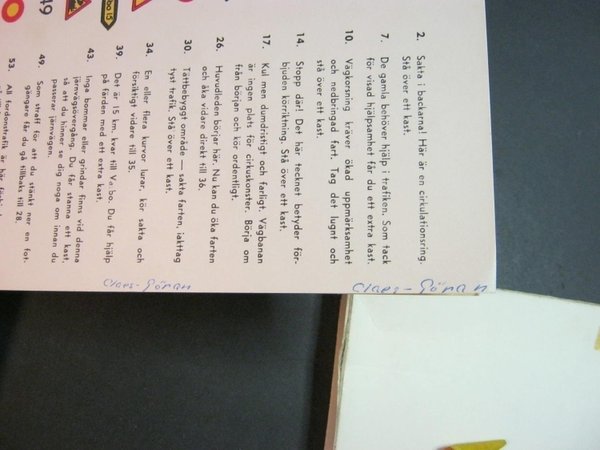 2. Sakta i backarna! Här är en cirkulationsring.
Stå över ett kast.
7. De gamla behöver hjälp i trafiken. Som tack
för visad hjälpsamhet får du ett extra kast.
10. Vägkorsning kräver ökad uppmärksamhet
och nedbringad fart. Tag det lugnt och
stå över ett kast.
14. Stopp där! Det här tecknet betyder för-
bjuden körriktning. Stå över ett kast.
17. Kul men dumdristigt och farligt. Vägbanan
är ingen plats för cirkuskonster. Börja om
från början och kör ordentligt.
26. Huvudleden börjar här. Nu kan du öka farten
och åka vidare direkt till 36.
30. Tättbebyggt område — sakta farten, iakttag
tyst trafik. Stå över ett kast.
34. En eller flera kurvor lurar, kör sakta och
försiktigt vidare till 35.
39. Det är 15 km. kvar till V a: bo. Du får hjälp
på färden med ett extra kast.
43. Inga bommar eller grindar finns vid denna
järnvägsövergång. Du får stanna ett kast,
så att du hinner se dig noga om innan du
passerar järnvägen.
49. Som straff för att du stänkt ner en fot-
gängare får du gå tillbaks till 28.
53. All fordonstrafik är här
49
bo 15
Claes-Göran
Claes-Göran